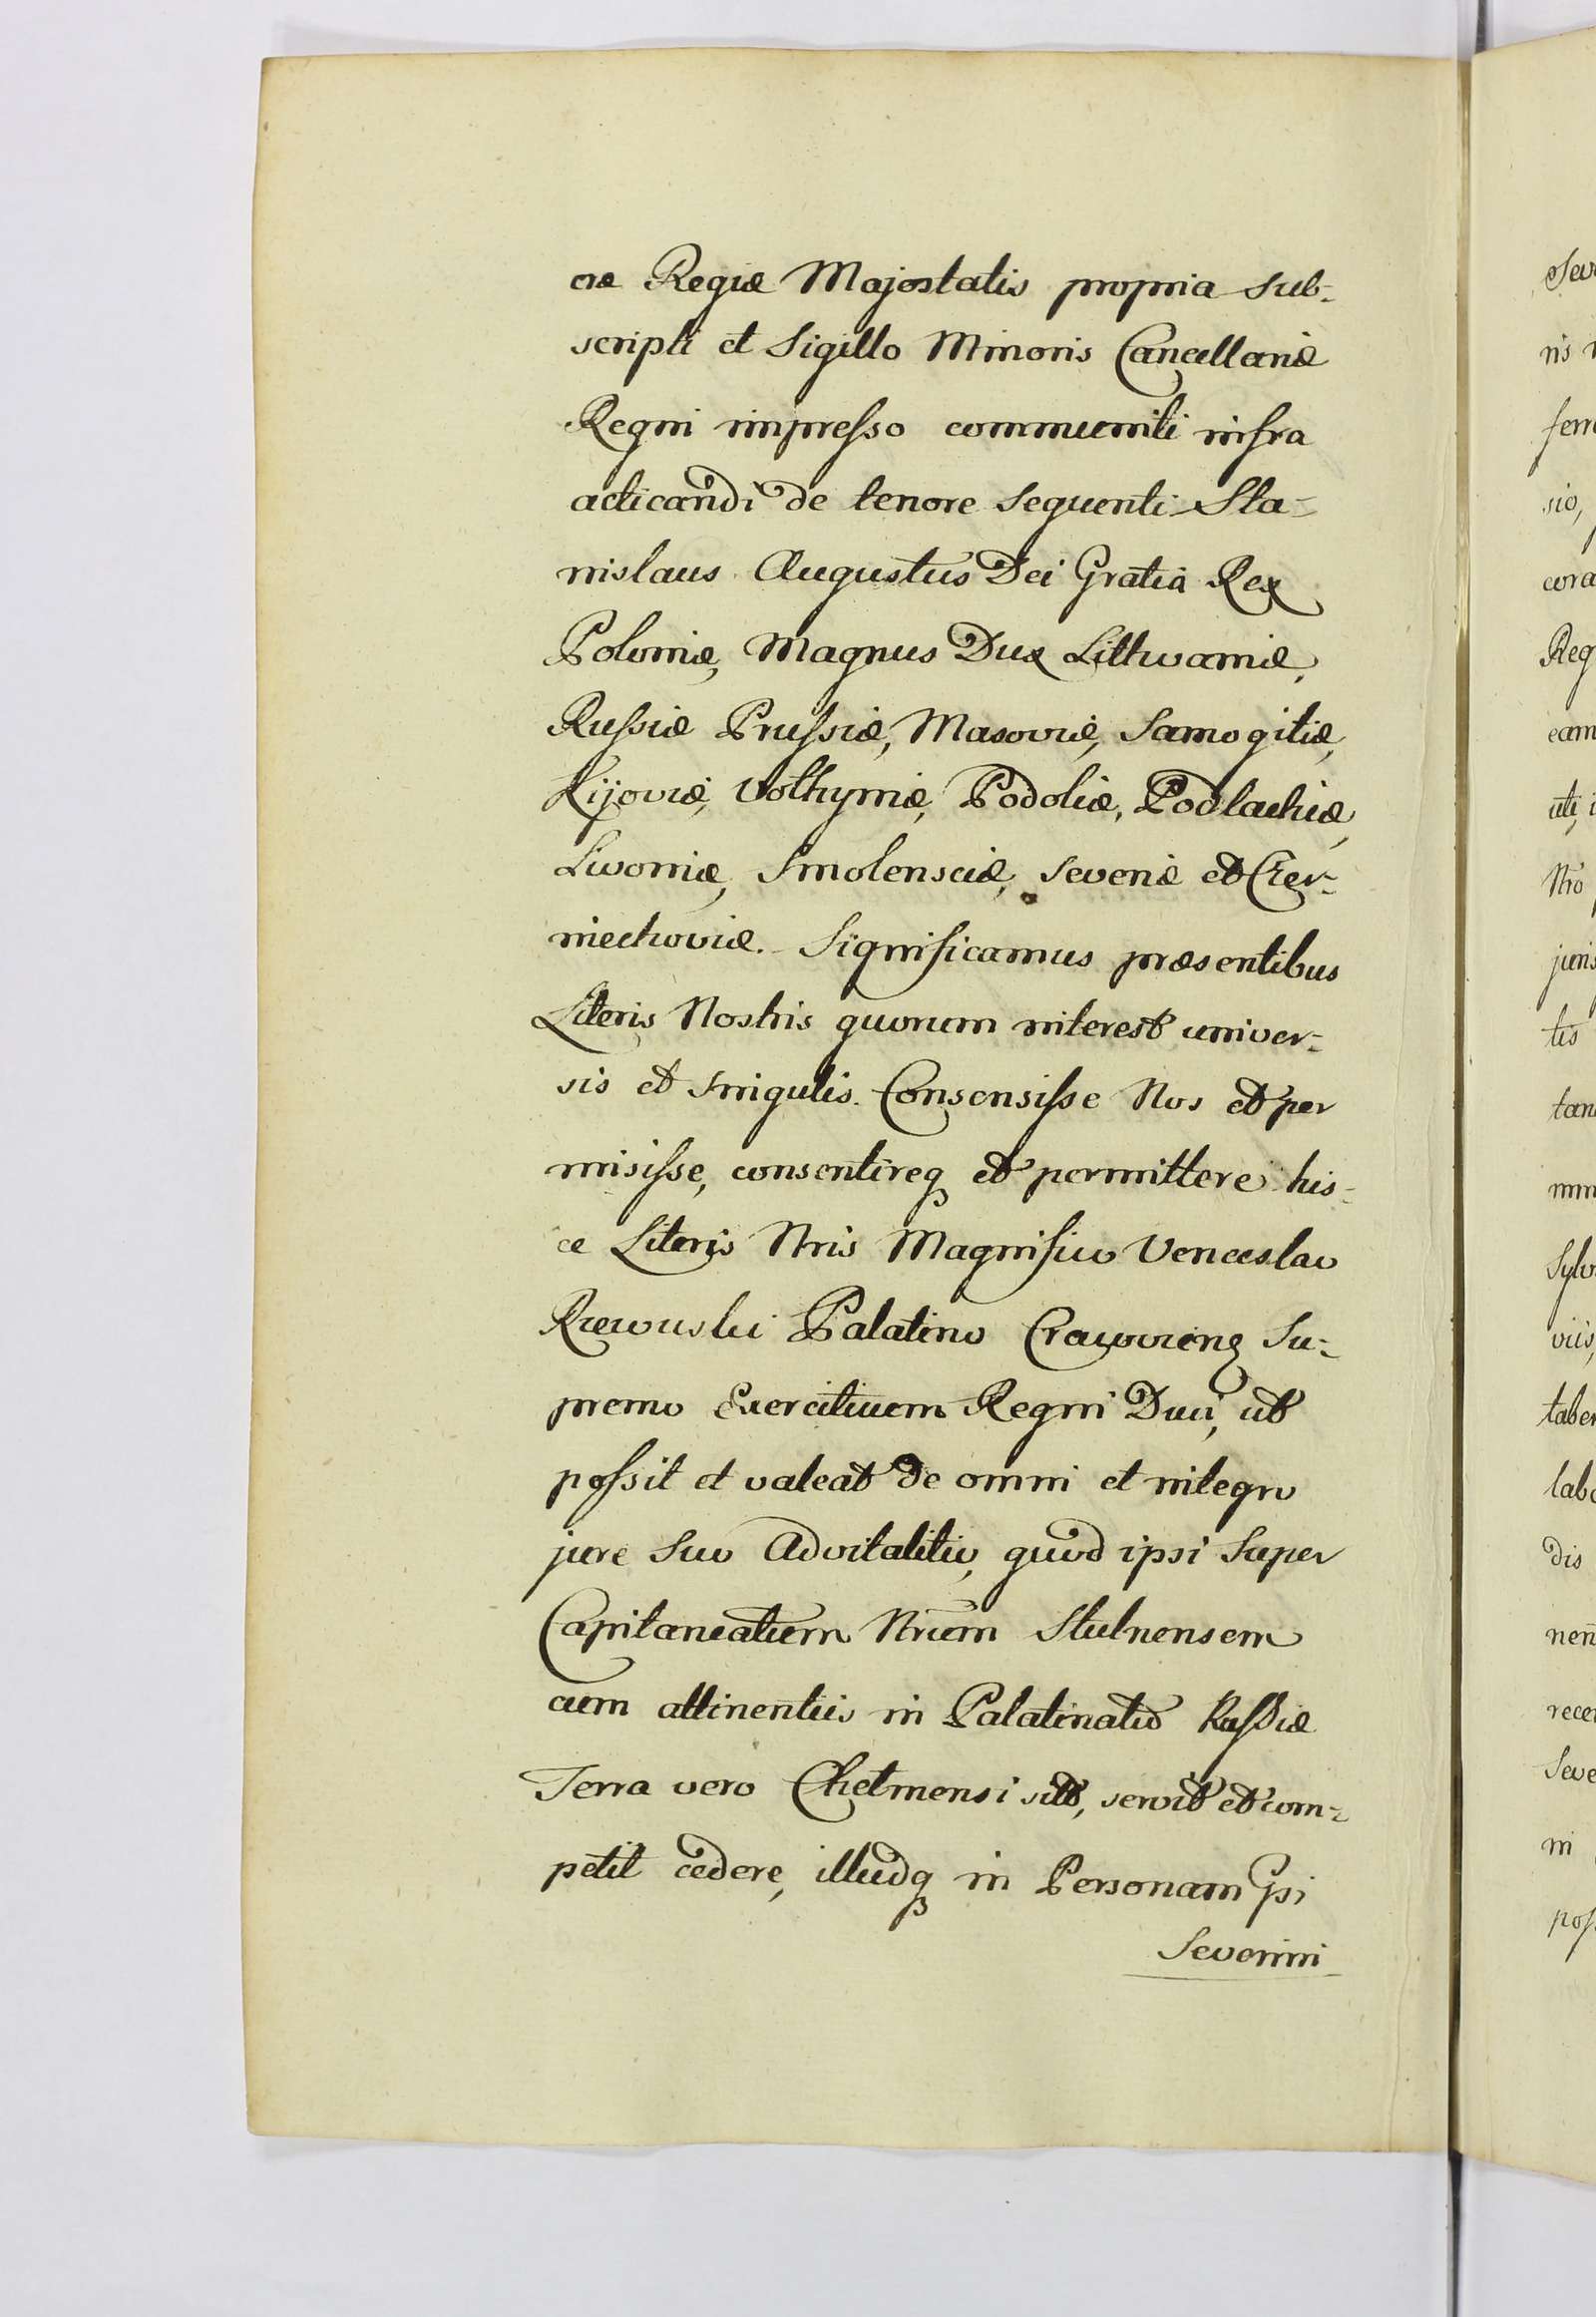 cræ Regiæ Majestatis propria sub-
scripti et Sigillo Minoris Cancellariæ
Regni impresso communiti infra
acticandi de tenore sequenti Sta-
nislaus Augustus Dei Gratia Rex
Poloniæ, Magnus Dux Lithvaniæ,
Russiæ Prussiæ, Masoviæ, Samogitiæ,
Kijoviæ, Volhyniæ, Podoliæ, Podlachiæ,
Livoniæ, Smolensciæ, Severiæ et Czer-
niechoviæ. Significamus præsentibus
Literis Nostris quorum interest univer-
sis et singulis. Consensisse Nos et per
misisse, consentireq et permittere his-
ce Literis Nris Magnifico Venceslao
Rzewuski Palatino Cracovienq Su-
premo Exercituum Regni Duci, ut
possit et valeat de omni et integro
jure suo Advitalitio, quod ipsi super
Capitaneatum Nrum Stulnensem
cum attinentiis in Palatinatu Russiæ
Terra vero Chelmensi sitt, servit et com-
petit cedere, illudq in Personam Gsi
Severini
ris
sio,
Reg
Nro
juris
tis
viis,
dis
in